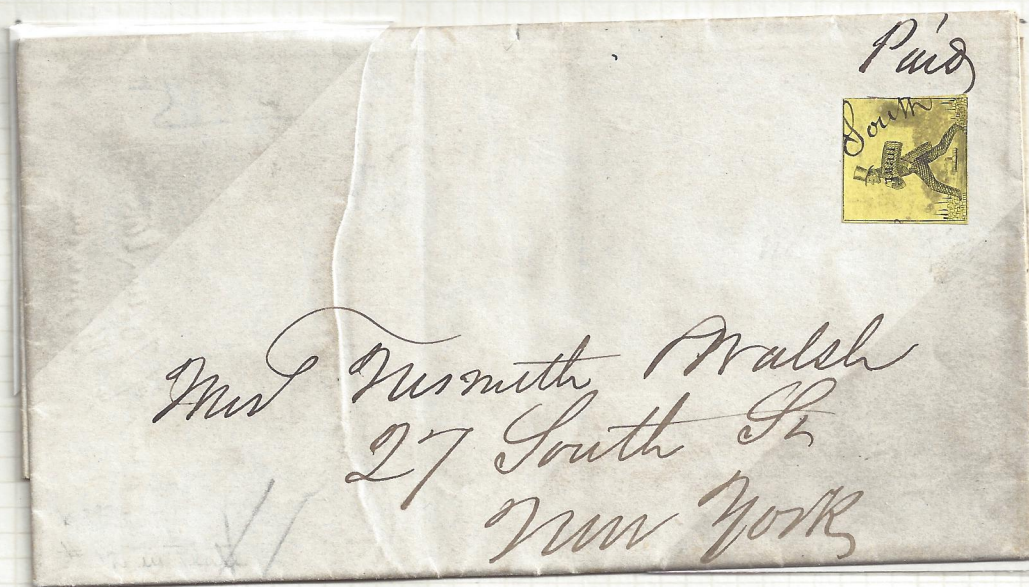 Paid
South
Nesmith Walsh
27 South St
New York